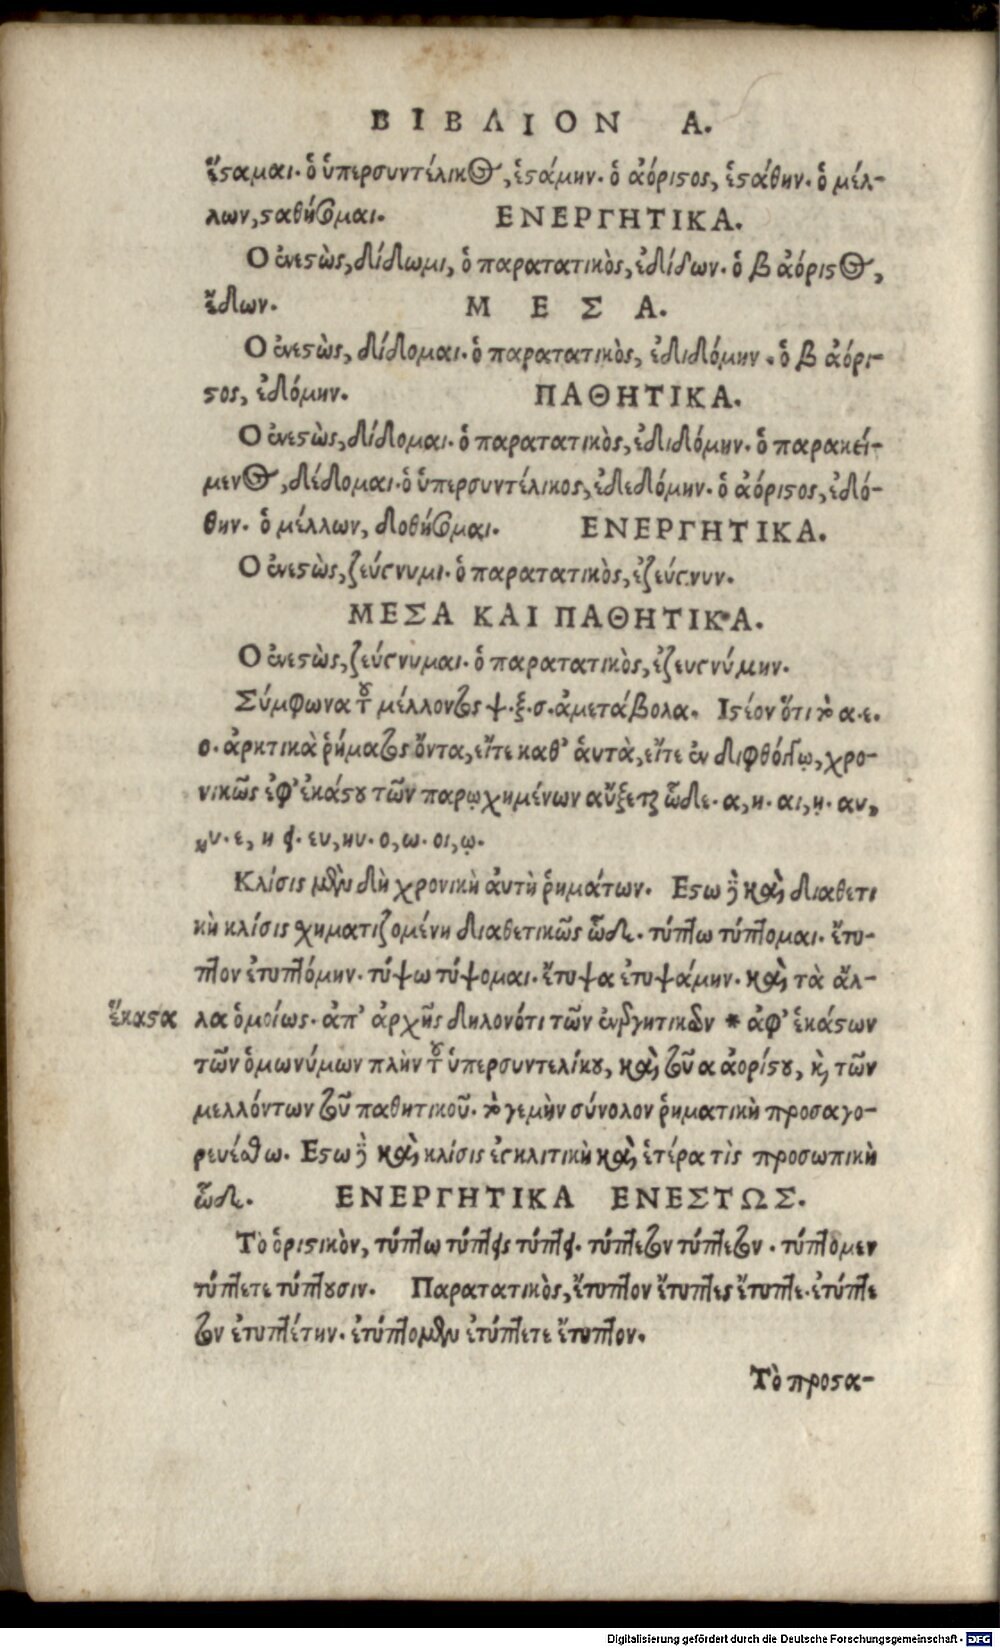 ΒΙΒΛΙΟΝ Α.
ἕϛαμαι. ὁ ὑπερσυντέλικος, ἑϛάμην. ὁ ἀόριϛος, ἑϛάθην. ὁ μέλ-
λων, ϛαθήσομαι. ΕΝΕΡΓΗΤΙΚΑ.
Ο ἐνεϛὼς, δίδωμι, ὁ παρατατικὸς, ἐδίδων. ὁ β ἀόριϛος,
ἔδων. ΜΕΣΑ.
Ο ἐνεϛὼς, δίδομαι. ὁ παρατατικὸς, ἐδιδόμην. ὁ β ἀόρι-
ϛος, ἐδόμην. ΠΑΘΗΤΙΚΑ.
Ο ἐνεϛὼς, δίδομαι. ὁ παρατατικὸς, ἐδιδόμην. ὁ παρακεί-
μενος, δέδομαι. ὁ ὑπερσυντέλικος, ἐδεδόμην. ὁ ἀόριϛος, ἐδό-
θην. ὁ μέλλων, δοθήσομαι. ΕΝΕΡΓΗΤΙΚΑ.
Ο ἐνεϛὼς, ζεύγνυμι. ὁ παρατατικὸς, ἐζεύγνυν.
ΜΕΣΑ ΚΑΙ ΠΑΘΗΤΙΚΑ.
Ο ἐνεϛὼς, ζεύγνυμαι. ὁ παρατατικὸς, ἐζευγνύμην.
Σύμφωνα τοῦ μέλλοντος ψ. ξ. σ. ἀμετάβολα. Ιϛέον ὅτι τὸ α. ε.
ο. ἀρκτικὰ ῥήματος ὄντα, εἴτε καθ' ἁυτὰ, εἴτε ἐν διφθόγγῳ, χρο-
νικῶς ἐφ' ἑκάϛου τῶν παρῳχημένων αὔξεται ὧδε. α, η. αι, ῃ. αυ,
ηυ. ε, η ει. ευ, ηυ. ο, ω. οι, ῳ.
Κλίσις μὲν δὴ χρονικὴ ἀυτὴ ῥημάτων. Εϛω δὲ καὶ διαθετι
κὴ κλίσις χηματιζομένη διαθετικῶς ὧδε. τύπτω τύπτομαι. ἔτυ-
πτον ἐτυπτόμην. τύψω τύψομαι. ἔτυψα ἐτυψάμην. καὶ τὰ ἄλ-
ἕκαϛα λα ὁμοίως. ἀπ' ἀρχῆς δηλονότι τῶν ἐνεργητικῶν * ἀφ' ἑκάϛων
τῶν ὁμωνύμων πλὴν τοῦ ὑπερσυντελίκου, καὶ τοῦ α ἀορίϛου, καὶ τῶν
μελλόντων τοῦ παθητικοῦ. τὸ γεμὴν σύνολον ῥηματικὴ προσαγο-
ρευέσθω. Εϛω δὲ καὶ κλίσις ἐγκλιτικὴ καὶ ἑτέρα τὶς προσωπικὴ
ὧδε. ΕΝΕΡΓΗΤΙΚΑ ΕΝΕΣΤΩΣ.
Τὸ ὁριϛικὸν, τύπτω τύπτεις τύπτει. τύπτετον τύπτετον. τύπτομεν
τύπτετε τύπτουσιν. Παρατατικὸς, ἔτυπτον ἔτυπτες ἔτυπτε. ἐτύπτε
τον ἐτυπτέτην. ἐτύπτομεν ἐτύπτετε ἔτυπτον.
Τὸ προϛα-
Digitalisierung gefördert durch die Deutsche Forschungsgemeinschaft - DFG